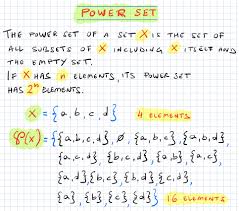 POWER SET
THE POWER SET OF A SET X IS THE SET OF
ALL SUBSETS OF X INCLUDING X ITSELF AND
THE EMPTY SET.
IF X HAS n ELEMENTS, ITS POWER SET
HAS 2ⁿ ELEMENTS.
X = {a, b, c, d} 4 ELEMENTS
℘(X) = {{a, b, c, d}, ∅, {a, b, c}, {a, b, d},
{a, c, d}, {b, c, d}, {a, b}, {a, c}
{a, d}, {b, c}, {b, d}, {c, d},
{a}, {b}, {c}, {d}} 16 ELEMENTS